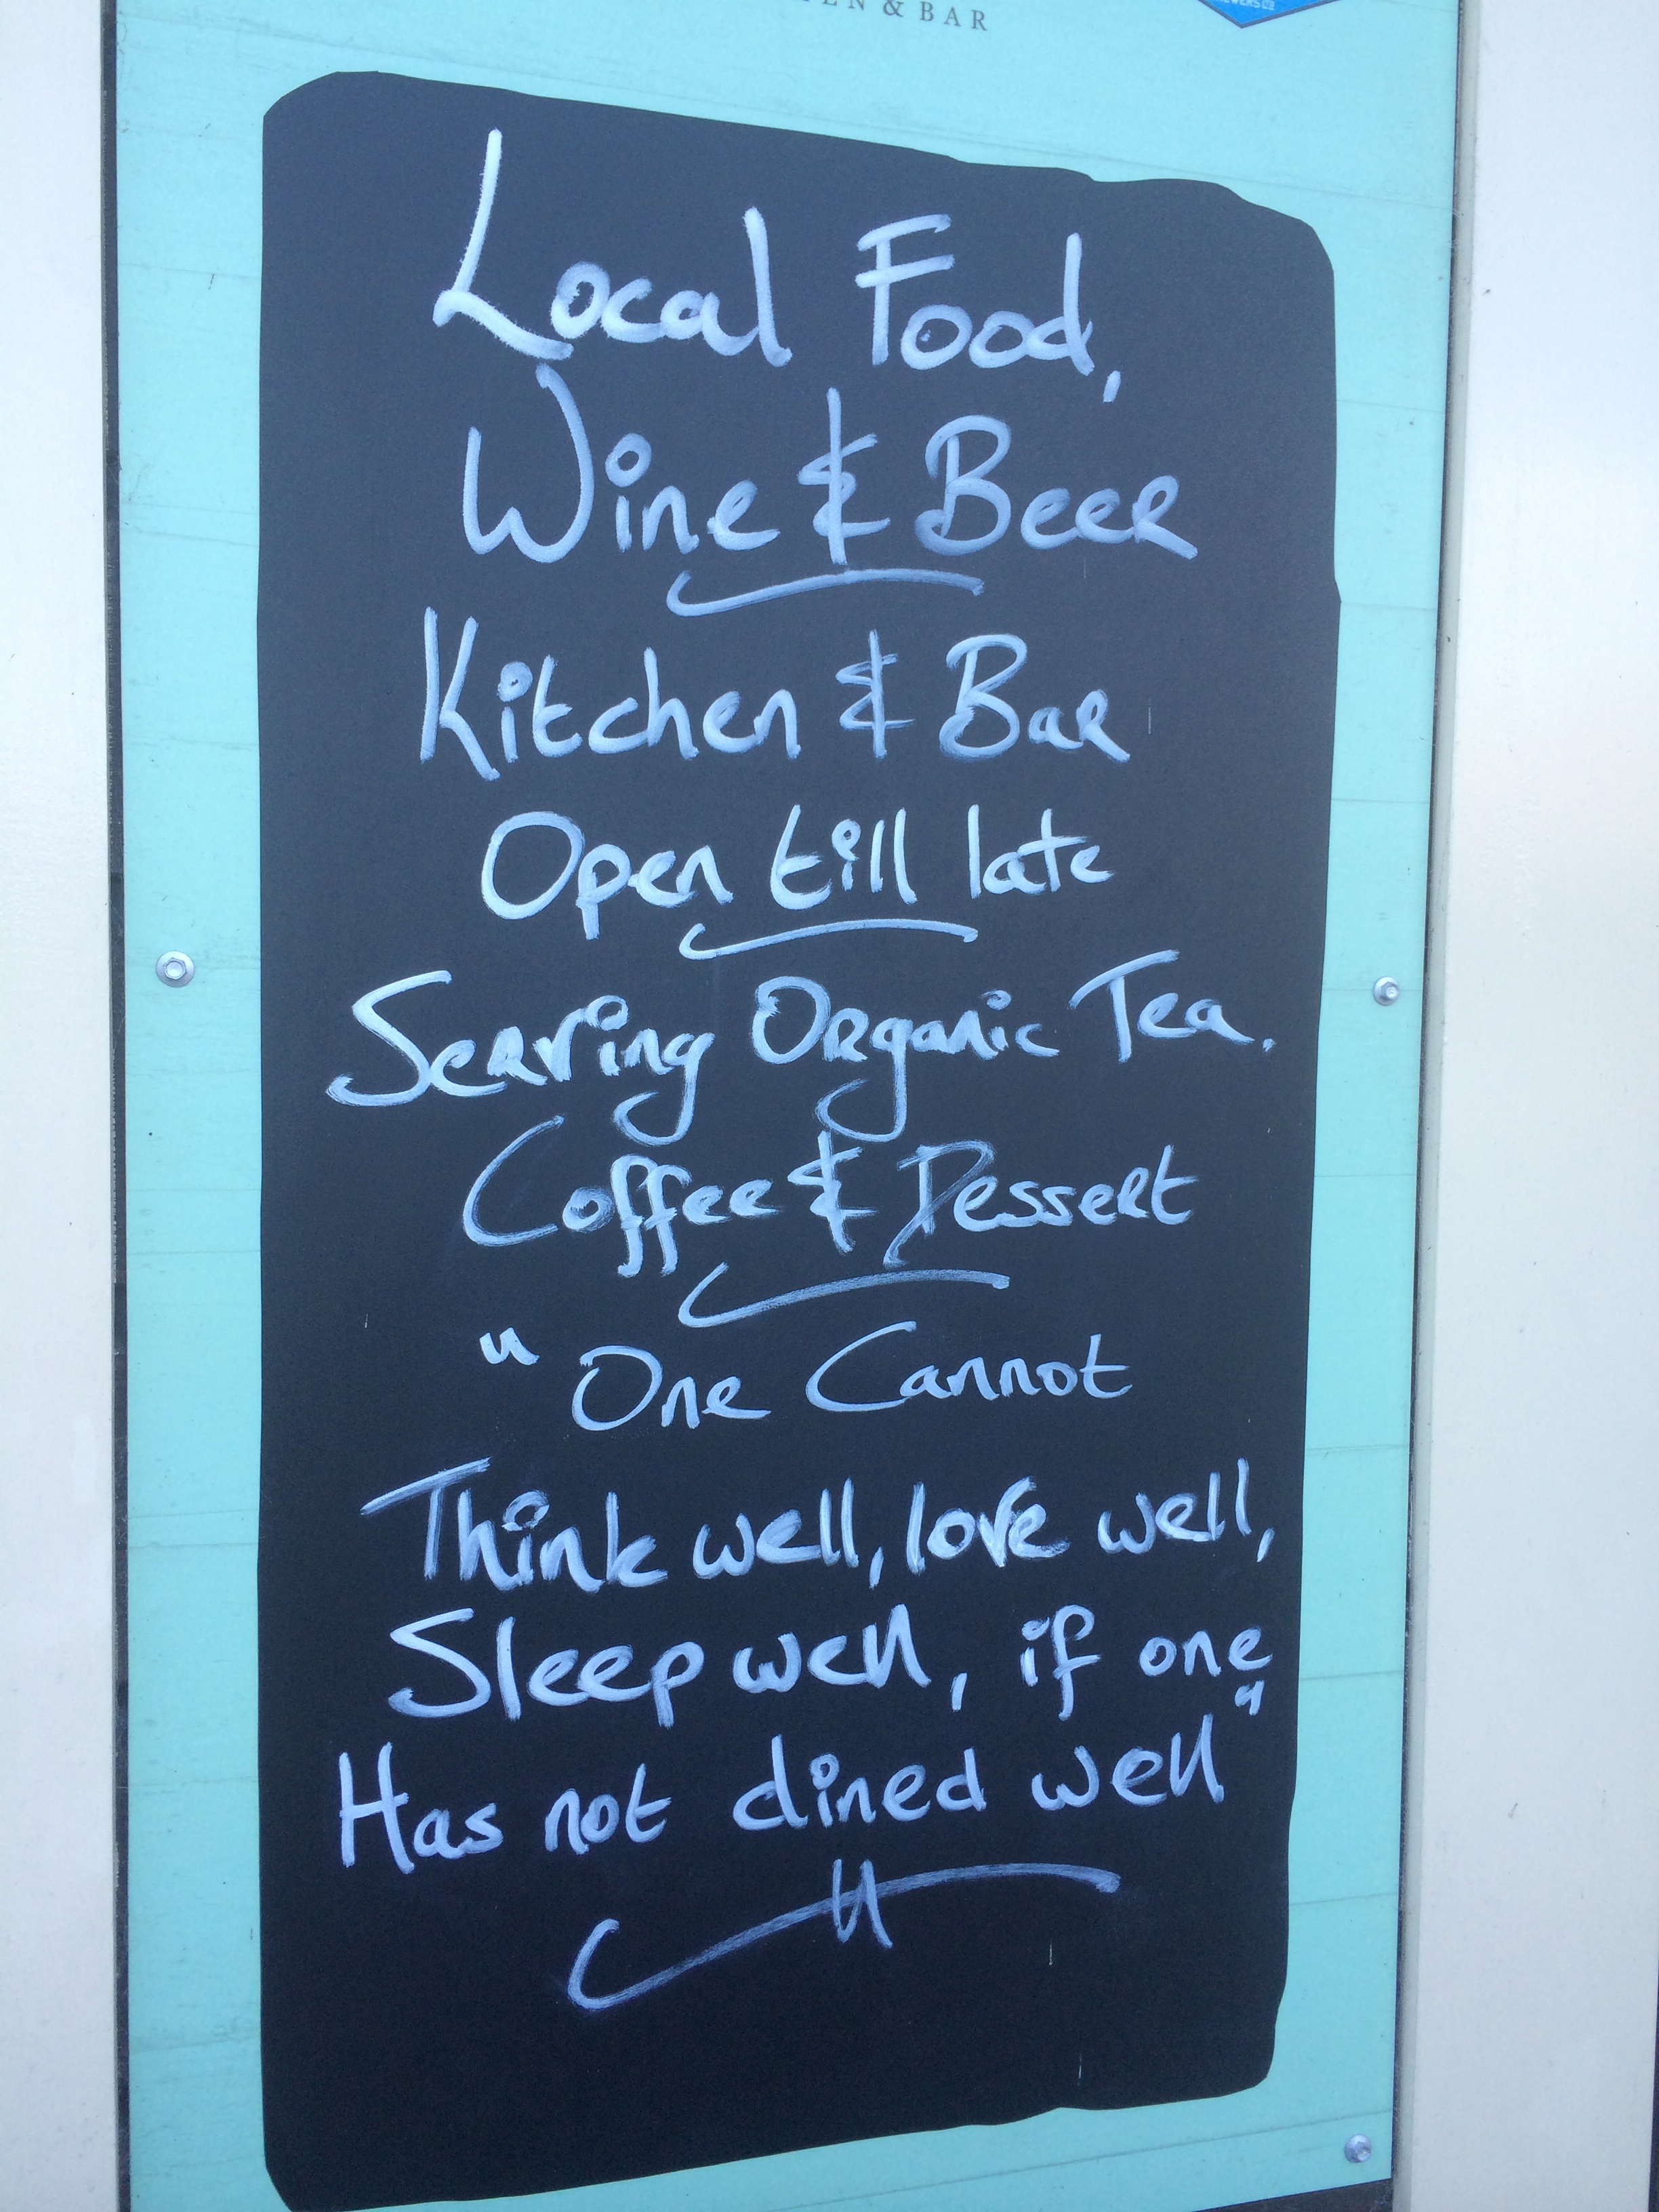 & BAR
Local Food,
Wine & Beer
Kitchen & Bar
Open till late
Serving Organic Tea,
Coffee & Dessert
"One Cannot
Think well, love well,
Sleep well, if one
Has not dined well"